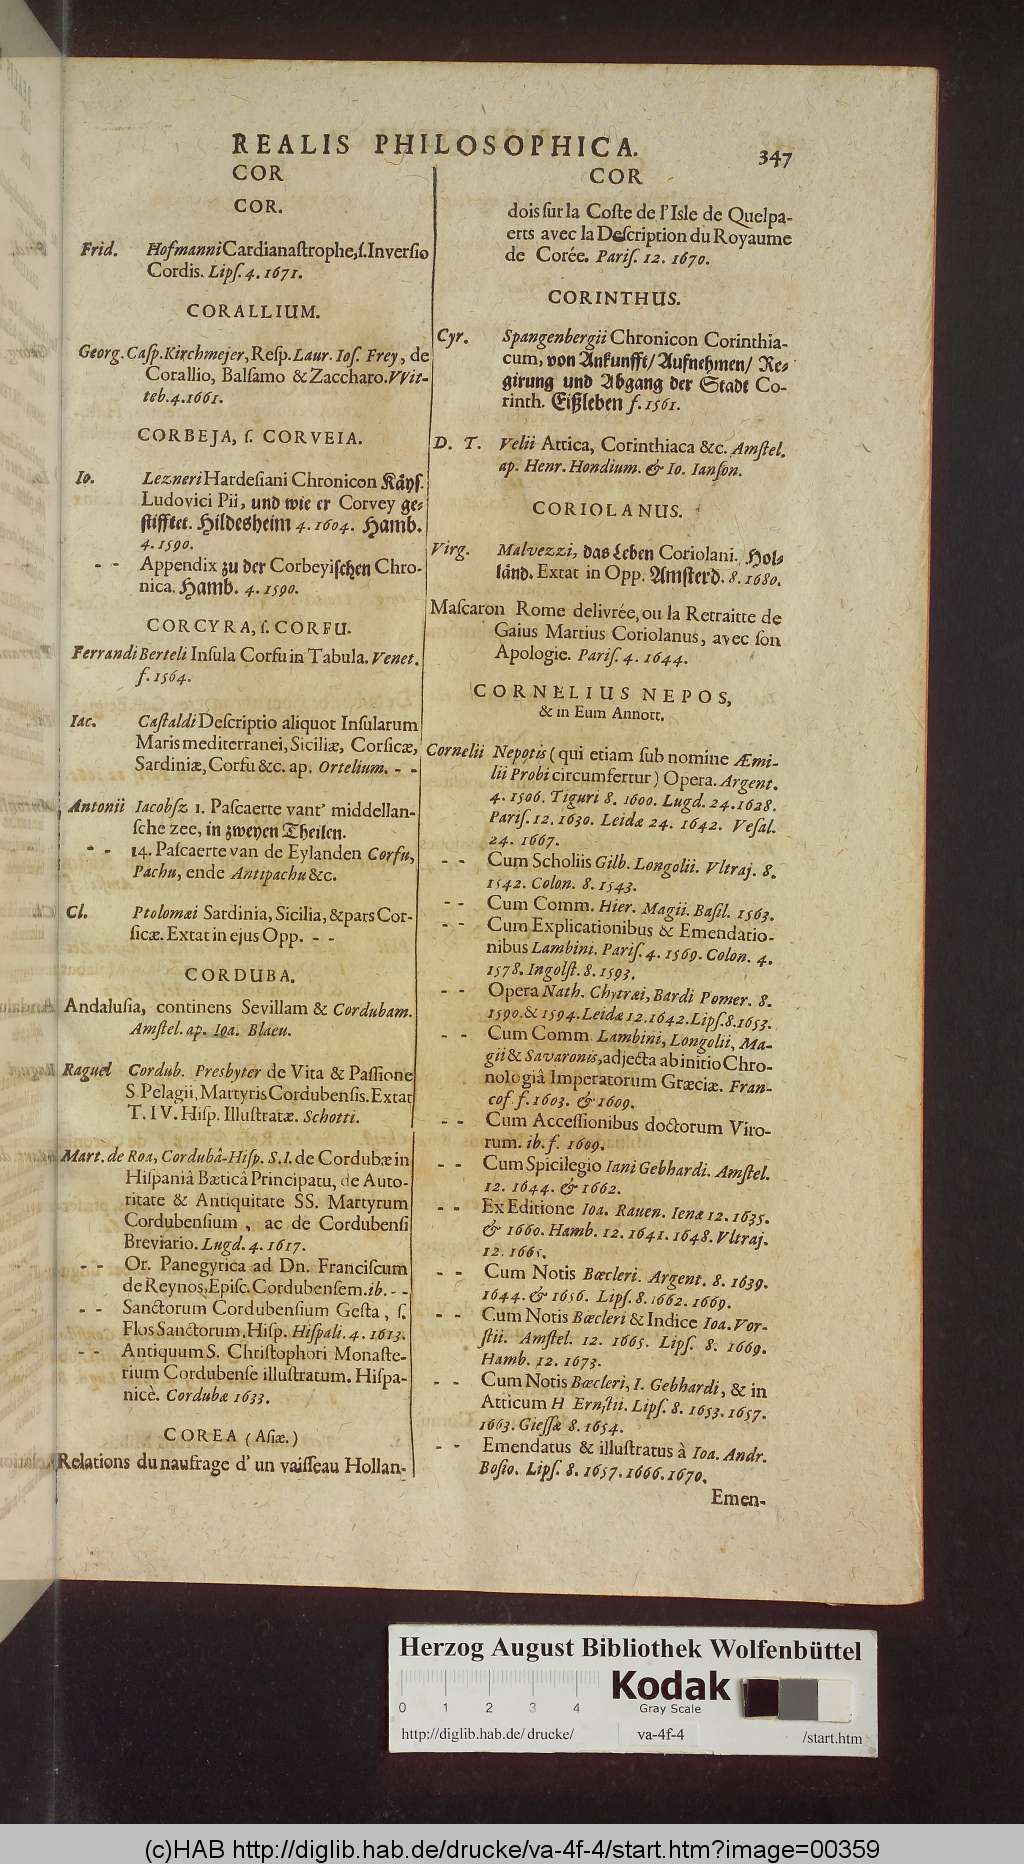 REALIS PHILOSOPHICA.
347
COR
COR.
Frid. Hofmanni Cardianastrophe, ſ. Inverſio
Cordis. Lipſ. 4. 1671.
CORALLIUM.
Georg. Caſp. Kirchmejer, Reſp. Laur. Ioſ. Frey, de
Corallio, Balſamo & Zaccharo. VVit-
teb. 4. 1661.
CORBEJA, ſ. CORVEIA.
Io. Lezneri Hardeſiani Chronicon Käyſ.
Ludovici Pii, und wie er Corvey ge-
ſtifftet. Hildesheim 4. 1604. Hamb.
4. 1590.
- - Appendix zu der Corbeyiſchen Chro-
nica. Hamb. 4. 1590.
CORCYRA, ſ. CORFU.
Ferrandi Berteli Inſula Corfu in Tabula. Venet.
f. 1564.
Iac. Caſtaldi Deſcriptio aliquot Inſularum
Maris mediterranei, Siciliæ, Corſicæ,
Sardiniæ, Corfu &c. ap. Ortelium. - -
Antonii Iacobſz 1. Paſcaerte vant' middellan-
ſche zee, in zweyen Theilen.
- - 14. Paſcaerte van de Eylanden Corfu,
Pachu, ende Antipachu &c.
Cl. Ptolomæi Sardinia, Sicilia, & pars Cor-
ſicæ. Extat in ejus Opp. - -
CORDUBA.
Andaluſia, continens Sevillam & Cordubam.
Amſtel. ap. Ioa. Blaeu.
Raguel Cordub. Presbyter de Vita & Paſſione
S Pelagii, Martyris Cordubenſis. Extat
T. IV. Hiſp. Illuſtratæ. Schotti.
Mart. de Roa, Cordubâ-Hiſp. S. I. de Cordubæ in
Hiſpaniâ Bæticâ Principatu, de Auto-
ritate & Antiquitate SS. Martyrum
Cordubenſium, ac de Cordubenſi
Breviario. Lugd. 4. 1617.
- - Or. Panegyrica ad Dn. Franciſcum
de Reynos, Epiſc. Cordubenſem. ib. - -
- - Sanctorum Cordubenſium Geſta, ſ.
Flos Sanctorum, Hiſp. Hiſpali. 4. 1613.
- - Antiquum S. Chriſtophori Monaſte-
rium Cordubenſe illuſtratum. Hiſpa-
nicè. Cordubæ 1633.
COREA (Aſiæ.)
Relations du naufrage d' un vaiſſeau Hollan-
COR
dois ſur la Coſte de l'Isle de Quelpa-
erts avec la Deſcription du Royaume
de Corée. Pariſ. 12. 1670.
CORINTHUS.
Cyr. Spangenbergii Chronicon Corinthia-
cum, von Ankunfft/ Aufnehmen/ Re-
girung und Abgang der Stadt Co-
rinth. Eißleben f. 1561.
D. T. Velii Attica, Corinthiaca &c. Amſtel.
ap. Henr. Hondium. & Io. Ianſon.
CORIOLANUS.
Virg. Malvezzi, das Leben Coriolani. Hol-
länd. Extat in Opp. Amſterd. 8. 1680.
Maſcaron Rome delivrée, ou la Retraitte de
Gaius Martius Coriolanus, avec ſon
Apologie. Pariſ. 4. 1644.
CORNELIUS NEPOS,
& in Eum Annott.
Cornelii Nepotis (qui etiam ſub nomine Æmi-
lii Probi circumfertur) Opera. Argent.
4. 1506. Tiguri 8. 1600. Lugd. 24. 1628.
Pariſ. 12. 1630. Leidæ 24. 1642. Veſal.
24. 1667.
- - Cum Scholiis Gilb. Longolii. Vltraj. 8.
1542. Colon. 8. 1543.
- - Cum Comm. Hier. Magii. Baſil. 1563.
- - Cum Explicationibus & Emendatio-
nibus Lambini. Pariſ. 4. 1569. Colon. 4.
1578. Ingolſt. 8. 1593.
- - Opera Nath. Chytræi, Bardi Pomer. 8.
1590. & 1594. Leidæ 12. 1642. Lipſ. 8. 1653.
- - Cum Comm. Lambini, Longolii, Ma-
gii & Savaronis, adjecta ab initio Chro-
nologiâ Imperatorum Græciæ. Fran-
cof f. 1603. & 1609.
- - Cum Acceſſionibus doctorum Viro-
rum. ib. f. 1609.
- - Cum Spicilegio Iani Gebhardi. Amſtel.
12. 1644. & 1662.
- - Ex Editione Ioa. Rauen. Ienæ 12. 1635.
& 1660. Hamb. 12. 1641. 1648. Vltraj.
12. 1665.
- - Cum Notis Bœcleri. Argent. 8. 1639.
1644. & 1656. Lipſ. 8. 1662. 1669.
- - Cum Notis Bœcleri & Indice Ioa. Vor-
ſtii. Amſtel. 12. 1665. Lipſ. 8. 1669.
Hamb. 12. 1673.
- - Cum Notis Bœcleri, I. Gebhardi, & in
Atticum H Ernſtii. Lipſ. 8. 1653. 1657.
1663. Gieſſæ 8. 1654.
- - Emendatus & illuſtratus à Ioa. Andr.
Boſio. Lipſ. 8. 1657. 1666. 1670.
Emen-
Herzog August Bibliothek Wolfenbüttel
Kodak
Gray Scale
0 1 2 3 4
http://diglib.hab.de/drucke/ va-4f-4 /start.htm
(c)HAB http://diglib.hab.de/drucke/va-4f-4/start.htm?image=00359